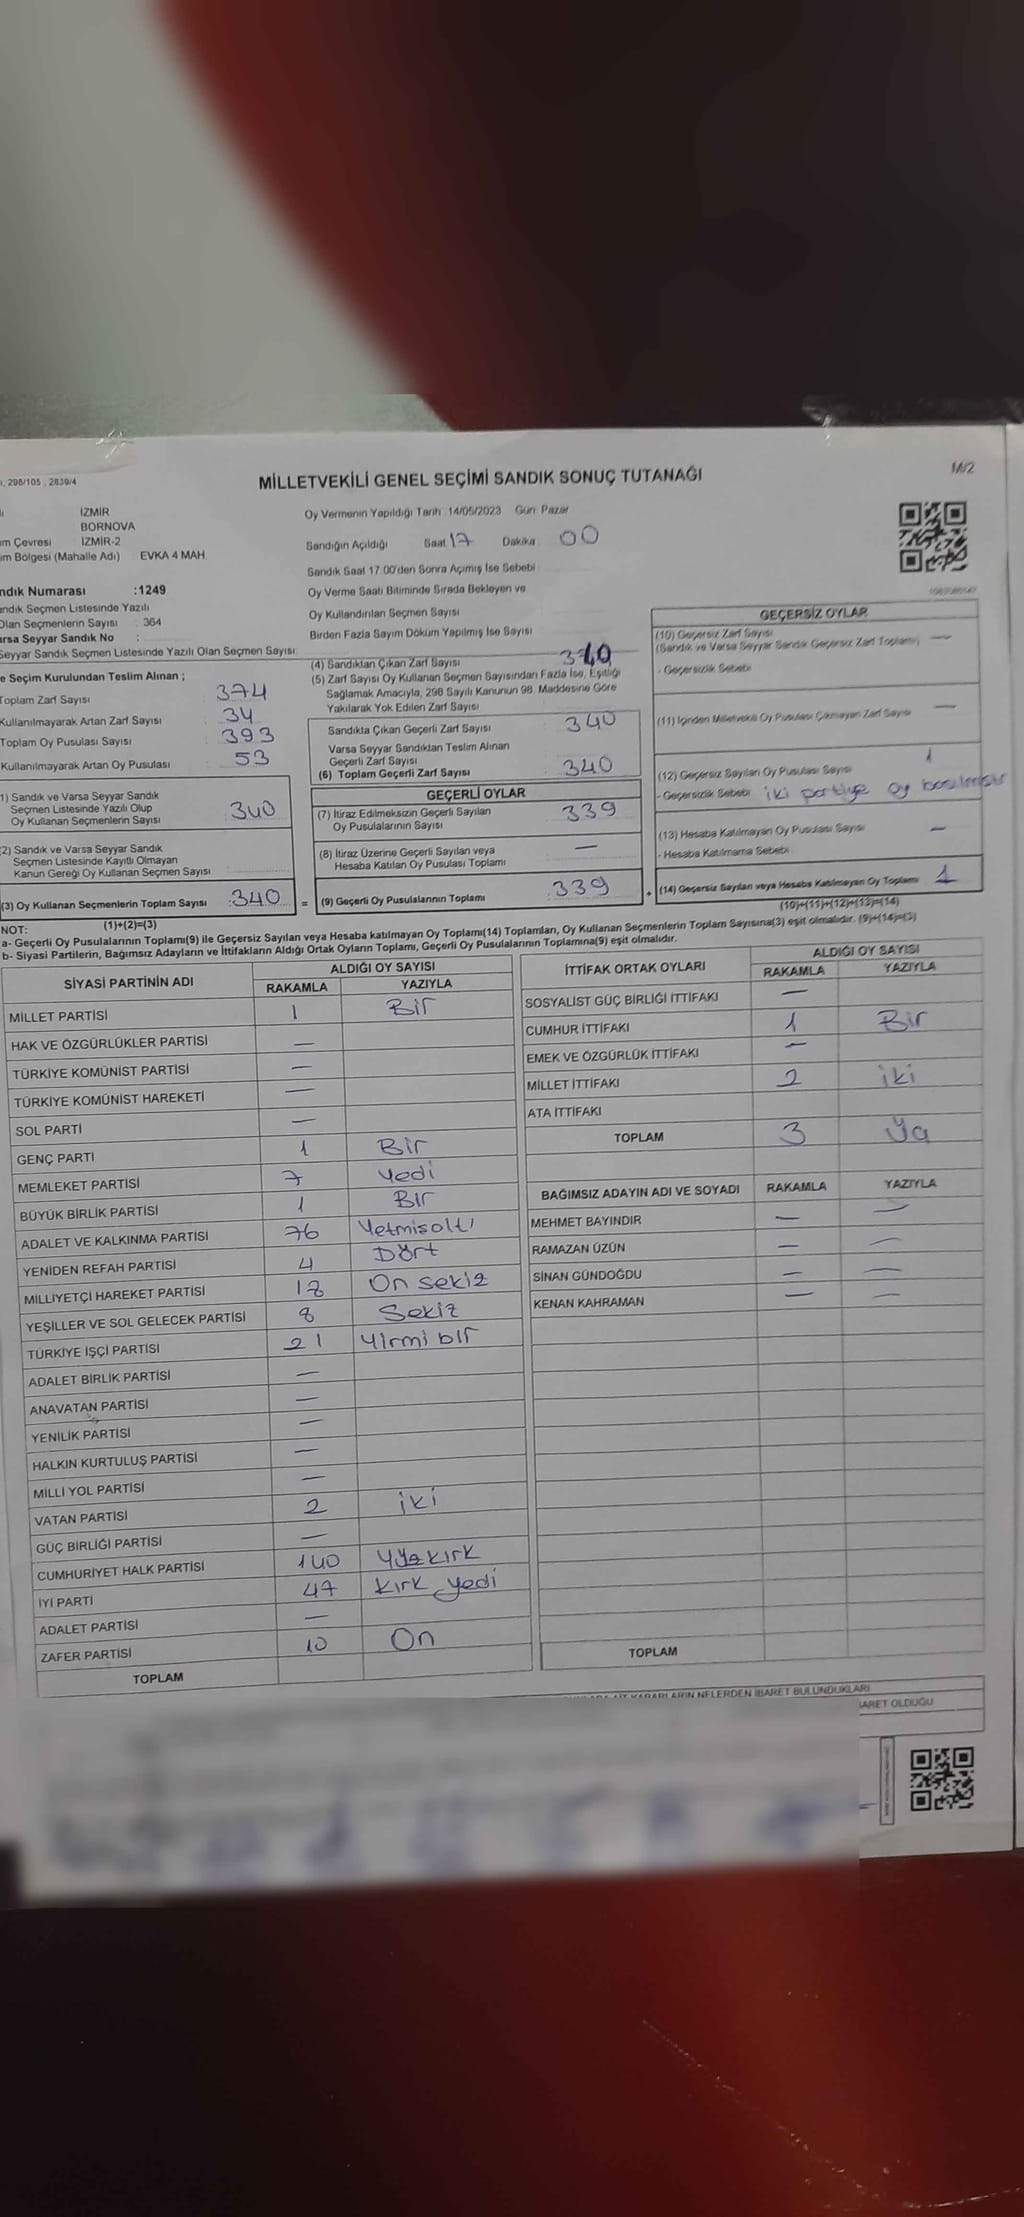 298/105 , 2839/4
MİLLETVEKİLİ GENEL SEÇİMİ SANDIK SONUÇ TUTANAĞI
M/2
İZMİR
BORNOVA
im Çevresi İZMİR-2
im Bölgesi (Mahalle Adı) EVKA 4 MAH
ndık Numarası :1249
andık Seçmen Listesinde Yazılı
Olan Seçmenlerin Sayısı : 364
arsa Seyyar Sandık No :
Seyyar Sandık Seçmen Listesinde Yazılı Olan Seçmen Sayısı
e Seçim Kurulundan Teslim Alınan ;
Toplam Zarf Sayısı : 374
Kullanılmayarak Artan Zarf Sayısı : 34
Toplam Oy Pusulası Sayısı : 393
Kullanılmayarak Artan Oy Pusulası : 53
1) Sandık ve Varsa Seyyar Sandık
Seçmen Listesinde Yazılı Olup
Oy Kullanan Seçmenlerin Sayısı : 340
2) Sandık ve Varsa Seyyar Sandık
Seçmen Listesinde Kayıtlı Olmayan
Kanun Gereği Oy Kullanan Seçmen Sayısı
(3) Oy Kullanan Seçmenlerin Toplam Sayısı : 340 =
(1)+(2)=(3)
Oy Vermenin Yapıldığı Tarih : 14/05/2023 Gün: Pazar
Sandığın Açıldığı Saat 17 Dakika 00
Sandık Saat 17.00'den Sonra Açımış İse Sebebi
Oy Verme Saati Bitiminde Sırada Bekleyen ve
Oy Kullandırılan Seçmen Sayısı
Birden Fazla Sayım Döküm Yapılmış İse Sayısı
(4) Sandıktan Çıkan Zarf Sayısı 340
(5) Zarf Sayısı Oy Kullanan Seçmen Sayısından Fazla İse, Eşitliği
Sağlamak Amacıyla, 298 Sayılı Kanunun 98. Maddesine Göre
Yakılarak Yok Edilen Zarf Sayısı
Sandıkta Çıkan Geçerli Zarf Sayısı : 340
Varsa Seyyar Sandıktan Teslim Alınan
Geçerli Zarf Sayısı
(6) Toplam Geçerli Zarf Sayısı : 340
GEÇERLİ OYLAR
(7) İtiraz Edilmeksizin Geçerli Sayılan
Oy Pusulalarının Sayısı : 339
(8) İtiraz Üzerine Geçerli Sayılan veya
Hesaba Katılan Oy Pusulası Toplamı —
(9) Geçerli Oy Pusulalarının Toplamı : 339 +
GEÇERSİZ OYLAR
(10) Geçersiz Zarf Sayısı
(Sandık ve Varsa Seyyar Sandık Geçersiz Zarf Toplamı) —
- Geçersizlik Sebebi
(11) İçinden Milletvekili Oy Pusulası Çıkmayan Zarf Sayısı —
(12) Geçersiz Sayılan Oy Pusulası Sayısı 1
- Geçersizlik Sebebi iki partiye oy basılmıştır
(13) Hesaba Katılmayan Oy Pusulası Sayısı —
- Hesaba Katılmama Sebebi
(14) Geçersiz Sayılan veya Hesaba Katılmayan Oy Toplamı 1
(10)+(11)+(12)+(13)=(14)
NOT:
a- Geçerli Oy Pusulalarının Toplamı(9) ile Geçersiz Sayılan veya Hesaba katılmayan Oy Toplamı(14) Toplamları, Oy Kullanan Seçmenlerin Toplam Sayısına(3) eşit olmalıdır. (9)+(14)=(3)
b- Siyasi Partilerin, Bağımsız Adayların ve İttifakların Aldığı Ortak Oyların Toplamı, Geçerli Oy Pusulalarının Toplamına(9) eşit olmalıdır.
SİYASİ PARTİNİN ADI ALDIĞI OY SAYISI
RAKAMLA YAZIYLA
MİLLET PARTİSİ 1 Bir
HAK VE ÖZGÜRLÜKLER PARTİSİ —
TÜRKİYE KOMÜNİST PARTİSİ —
TÜRKİYE KOMÜNİST HAREKETİ —
SOL PARTİ —
GENÇ PARTİ 1 Bir
MEMLEKET PARTİSİ 7 Yedi
BÜYÜK BİRLİK PARTİSİ 1 Bir
ADALET VE KALKINMA PARTİSİ 76 Yetmişaltı
YENİDEN REFAH PARTİSİ 4 Dört
MİLLİYETÇİ HAREKET PARTİSİ 18 On sekiz
YEŞİLLER VE SOL GELECEK PARTİSİ 8 Sekiz
TÜRKİYE İŞÇİ PARTİSİ 21 Yirmi bir
ADALET BİRLİK PARTİSİ —
ANAVATAN PARTİSİ —
YENİLİK PARTİSİ —
HALKIN KURTULUŞ PARTİSİ —
MİLLİ YOL PARTİSİ —
VATAN PARTİSİ 2 iki
GÜÇ BİRLİĞİ PARTİSİ —
CUMHURİYET HALK PARTİSİ 140 Yüzkırk
İYİ PARTİ 47 Kırk yedi
ADALET PARTİSİ —
ZAFER PARTİSİ 10 On
TOPLAM
İTTİFAK ORTAK OYLARI ALDIĞI OY SAYISI
RAKAMLA YAZIYLA
SOSYALİST GÜÇ BİRLİĞİ İTTİFAKI —
CUMHUR İTTİFAKI 1 Bir
EMEK VE ÖZGÜRLÜK İTTİFAKI —
MİLLET İTTİFAKI 2 iki
ATA İTTİFAKI
TOPLAM 3 Üç
BAĞIMSIZ ADAYIN ADI VE SOYADI RAKAMLA YAZIYLA
MEHMET BAYINDIR — —
RAMAZAN ÜZÜN — —
SİNAN GÜNDOĞDU — —
KENAN KAHRAMAN — —
TOPLAM
KARARLARIN NELERDEN İBARET BULUNDUKLARI
BARET OLDUĞU